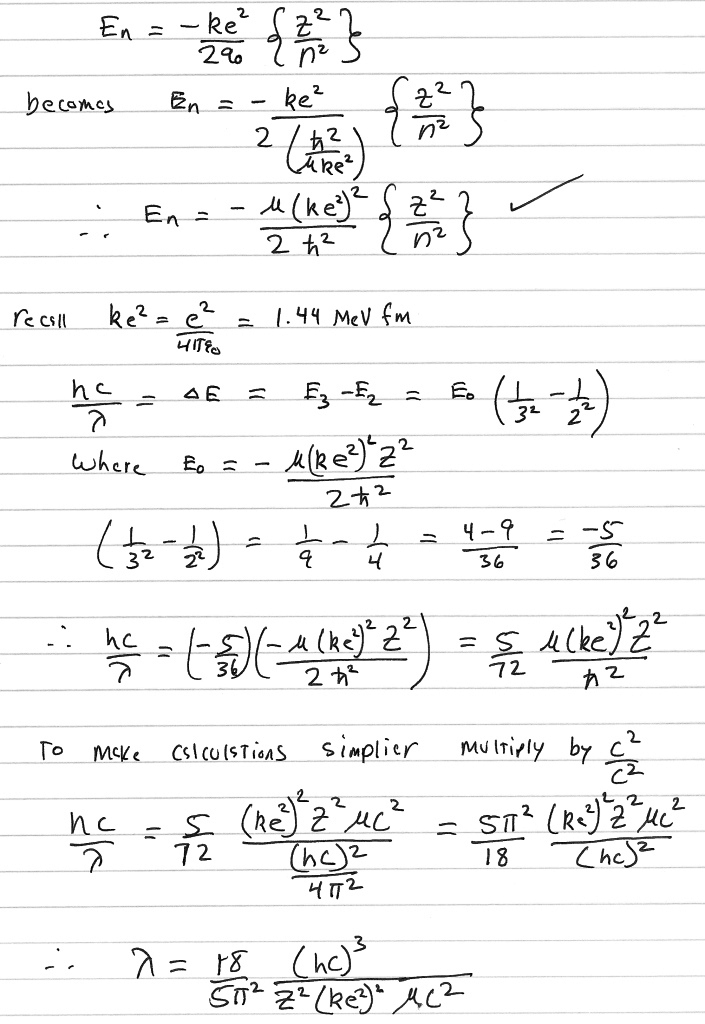 En = -ke²/2a₀ {Z²/n²}
becomes En = - ke²/2(ħ²/μke²) {Z²/n²}
∴ En = - μ(ke²)²/2ħ² {Z²/n²} ✓
recall ke² = e²/4πε₀ = 1.44 MeV fm
hc/λ = ΔE = E₃ - E₂ = E₀ (1/3² - 1/2²)
where E₀ = - μ(ke²)²Z²/2ħ²
(1/3² - 1/2²) = 1/9 - 1/4 = 4-9/36 = -5/36
∴ hc/λ = (-5/36)(-μ(ke²)²Z²/2ħ²) = 5/72 μ(ke²)²Z²/ħ²
To make calculations simplier multiply by c²/c²
hc/λ = 5/72 (ke²)²Z²μc²/((hc)²/4π²) = 5π²/18 (ke²)²Z²μc²/(hc)²
∴ λ = 18/5π² (hc)³/Z²(ke²)²μc²